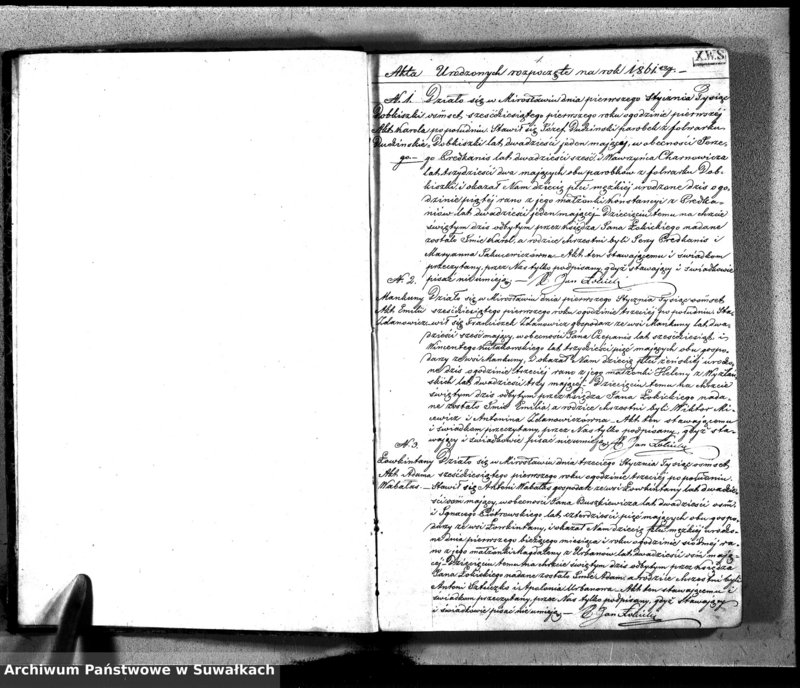 X.W.S
1
Akta Urodzonych rozpoczęte na rok 1861 szy. —
N. 1. Działo się w Mirosławiu dnia pierwszego Stycznia Tysiąc
Dobkiszki ośmset, sześćdziesiątego pierwszego roku ogodzinie pierwszej
Akt Karola popołudniu. Stawił się Józef Duchiński parobek z folwarku
Duchińskie- Dobkiszki lat dwadzieścia jeden mający, w obecności Jerze-
go — go Predkanis lat dwadzieścia sześć, i Wawrzyńca Charnowicza
lat trzydzieści dwa mających obu parobków z folwarku Dob-
kiszki, i okazał Nam dziecię płci męzkiej urodzone dziś ogo-
dzinie piątej rano z jego małżonki Konstancyi z Predka-
nisów lat dwadzieścia jeden mającej. Dziecięciu temu na chrzcie
świętym dziś odbytym przez Księdza Jana Łokickiego nadane
zostało Imie Karol, a rodzice chrzestni byli Jerzy Predkanis i
Maryanna Jakucewiczówna. Akt ten stawającemu i świadkom
przeczytany, przez Nas tylko podpisany, gdyż stawający i świadkowie
pisać nieumieją — X. Jan Łokicki
N. 2.
Mankuny Działo się w Mirosławiu dnia pierwszego Stycznia Tysiąc ośmset
Akt Emilii sześćdziesiątego pierwszego roku ogodzinie trzeciej po południu. Sta-
Zdanowicz wił się Franciszek Zdanowicz gospodarz ze wsi Mankuny lat dwa-
dzieścia sześć mający, w obecności Jana Czepanis lat sześćdziesiąt i
Wincentego Rutkowskiego lat trzydzieści pięć mających obu gospo-
darzy ze wsi Mankuny, i okazał Nam dziecię płci żeńskiej urodzo-
ne dziś ogodzinie trzeciej rano z jego małżonki Heleny z
lat dwadzieścia trzy mającej. Dziecięciu temu na chrzcie
świętym dziś odbytym przez księdza Jana Łokickiego nada-
ne zostało Imie Emilia, a rodzice chrzestni byli Wiktor Mi-
cewicz i Antonina Zdanowiczówna. Akt ten stawającemu
i świadkom przeczytany, przez Nas tylko podpisany, gdyż sta-
wający i świadkowie pisać nieumieją. X. Jan Łokicki
N. 3.
Łowkintany Działo się w Mirosławiu dnia trzeciego Stycznia Tysiąc ośmset,
Akt Adama sześćdziesiątego pierwszego roku ogodzinie trzeciej popołudniu.
Wabalas — Stawił się Antoni Wabalas gospodarz ze wsi Łowkintany, lat dwadzie-
ścia ośm mający, w obecności Jana Buszkiewicza lat dwadzieścia ośm,
i Ignacego Piotrowskiego lat czterdzieści pięć mających obu gospo-
darzy ze wsi Łowkintany, i okazał Nam dziecię płci męzkiej urodzo-
ne dnia pierwszego bieżącego miesiąca i roku ogodzinie siódmej ra-
no z jego małżonki Magdaleny z Urbanów lat dwadzieścia ośm mają-
cej. Dziecięciu temu na chrzcie świętym dziś odbytym przez księdza
Jana Łokickiego nadane zostało Imie Adam, a rodzice chrzestni byli
Antoni i Apolonia Urbanowa. Akt ten stawającemu i
świadkom przeczytany, przez Nas tylko podpisany, gdyż Stawający
i świadkowie pisać nieumieją — X. Jan Łokicki
Archiwum Państwowe w Suwałkach